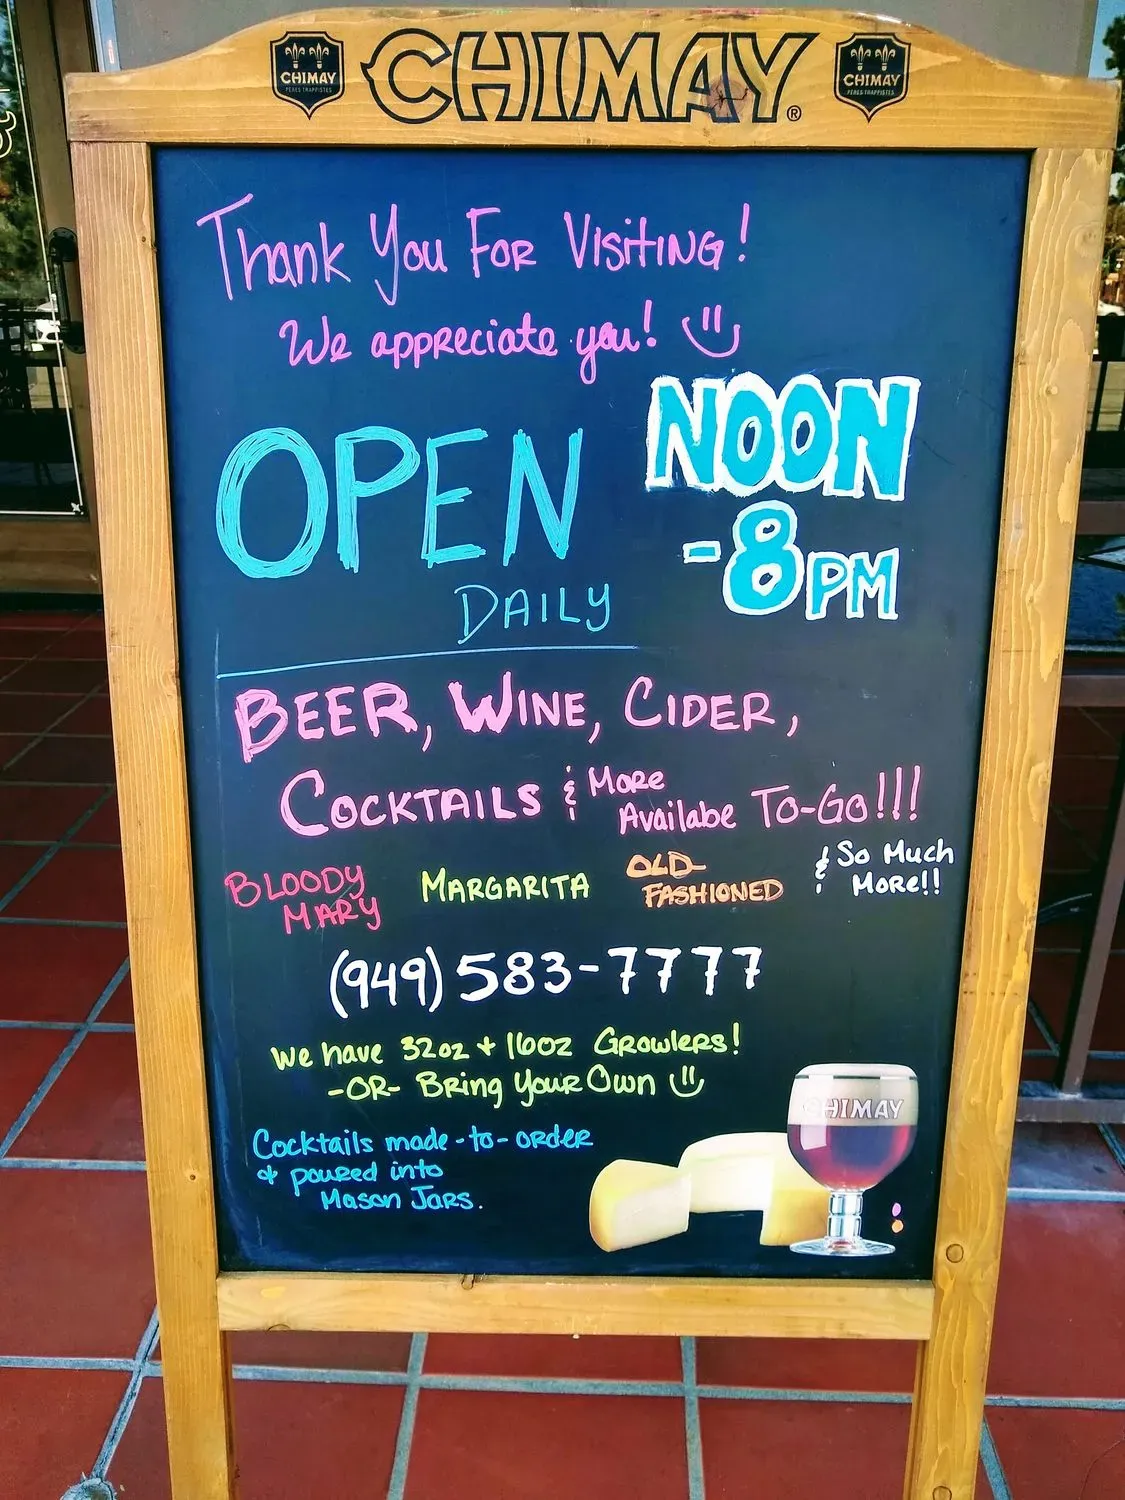 CHIMAY
PERES TRAPPISTES
CHIMAY®
CHIMAY
PERES TRAPPISTES
Thank You For Visiting!
We appreciate you!
OPEN
DAILY
NOON
-8PM
BEER, WINE, CIDER,
COCKTAILS & More Availabe To-Go!!!
BLOODY MARY
MARGARITA
OLD-FASHIONED
& So Much More!!
(949) 583-7777
We have 32oz + 16oz Growlers!
-OR- Bring Your Own
Cocktails made-to-order
& poured into
Mason Jars.
CHIMAY